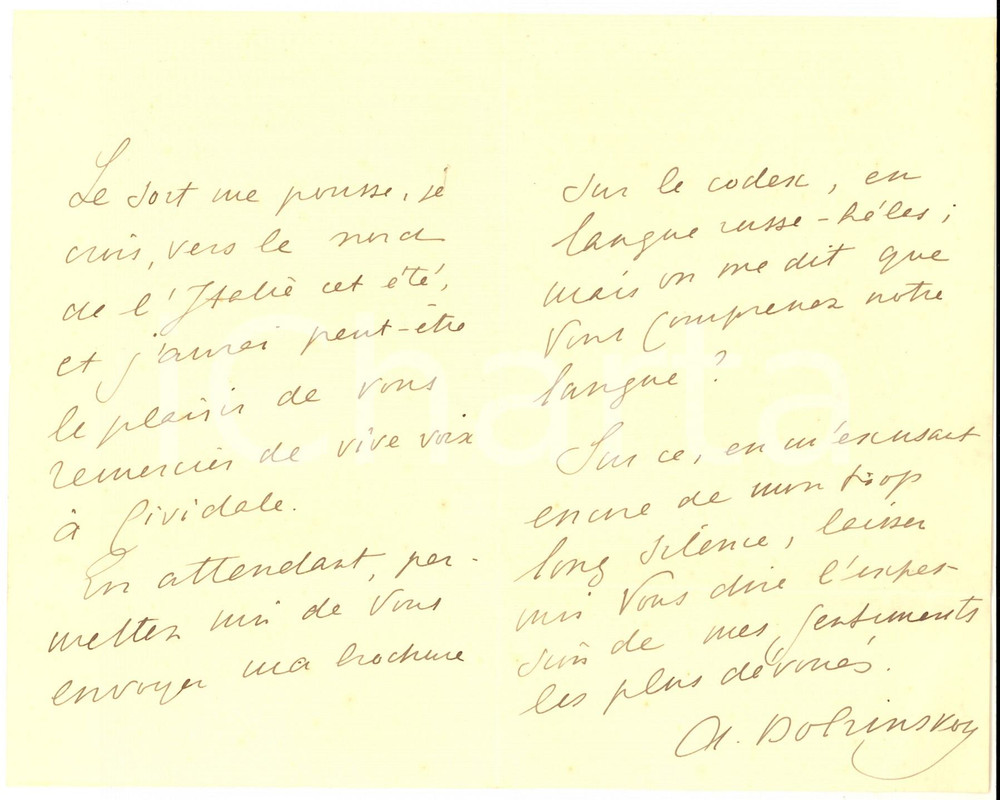 Le sort me pousse, je
crois, vers le nord
de l'Italie cet été,
et j'aurai peut-être
le plaisir de vous
remercier de vive voix
à Cividale.
En attendant, per-
mettez moi de Vous
envoyer ma brochure
sur le codex, en
langue russe - hélas ;
mais on me dit que
Vous comprenez notre
langue ?
Sur ce, en m'excusant
encore de mon trop
long silence, laissez
moi Vous dire l'expres-
sion de mes sentiments
les plus dévoués.
A. Bobrinskoy
iCharta